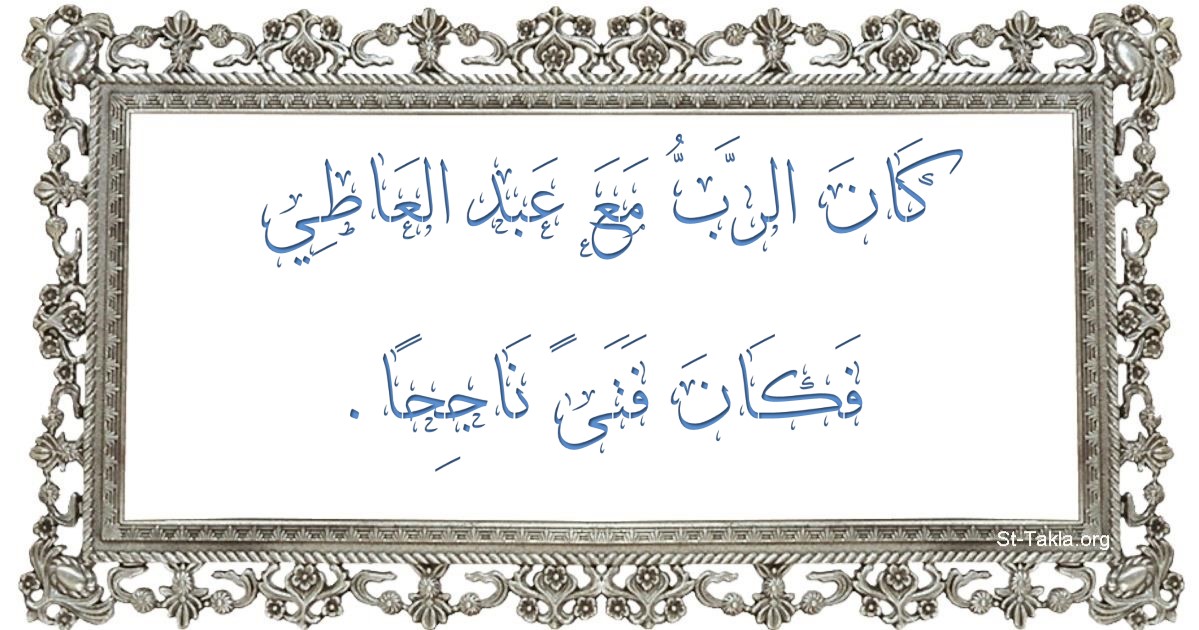 كَانَ الرَّبُّ مَعَ عَبْد العَاطِي
فَكَانَ فَتَىً نَاجِحًا.
St-Takla.org